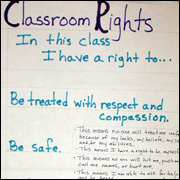 Classroom Rights
In this class
I have a right to...
Be treated with respect and
compassion.
- This means no one will
because of my looks, my beliefs, my
and/or my abilities.
- This means I have a right to be myself
Be safe.
- This means no one will hit me, push me
call me names, or hurt me
- This means I am able to ask for help